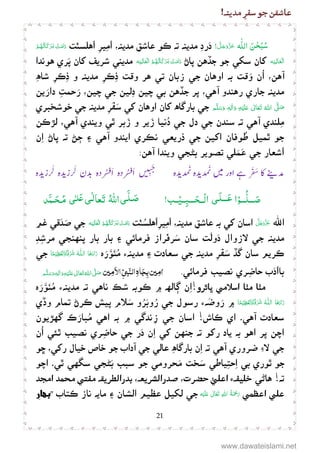 عاشقن جو سفرِ مدينہ!
سُبْحٰنَ اللّٰه عَزَّوَجَلَّ! دردِ مدينہ تہ کو عاشقِ مدينہ، اميرِ اھلسنّت دَامَتْ بَرَكَاتُهُمُ
الْعَالِيَه کان سکي جو جڏھن پاڻ دَامَتْ بَرَكَاتُهُمُ الْعَالِيَه مديني شريف کان پَري هوندا
آھن، اُن وَقت بہ اوھان جي زبان تي هر وقت ذِکرِ مدينہ و ذِکرِ شاھِ
مدينہ جاري رهندو آهي، پر جڏھن بي چين دلين جي چين، رحمتِ دارين
صَلَّى اللهُ تَعَالٰى عَلَيْهِ وَاٰلِهٖ وَسَلَّم جي بارگاھ کان اوھان کي سفرِ مدينہ جي خوشخبري
ملندي آهي تہ سندن جي دل جي دُنيا زير و زبر ٿي ويندي آهي، لڙڪن
جو ٿميل طوفان اکين جي ذريعي نڪري ايندو آهي ۽ ڄڻ تہ پاڻ اِن
اشعار جي عملي تصوير بڻجي ويندا آهن:
صَلُّوْا عَلَى الْحَبِيْب! صَلَّى اللهُ تَعَالٰى عَلٰى مُحَمَّد
اللّٰه عَزَّوَجَلَّ اسان کي بہ عاشقِ مدينہ، اميرِاھلسُنّت دَامَتْ بَرَكَاتُهُمُ الْعَالِيَه جي صَدقي غمِ
مدينہ جي لازوال دَولت سان سَرفراز فرمائي ۽ بار بار پنھنجي مرشدِ
ڪريم سان گڏ سفرِ مدينہ جي سعادت ۽ مدينہء مُنَوَّرَہ زَادَهَا اللهُ شَرَفًا وَّتَعْظِيْمًا جي
باآدَب حاضِري نصيب فرمائي. اٰمِيْن بِجَاهِ النَّبِيِّ الْاَمِيْن صَلَّى اللهُ تَعَالٰى عَلَيْهِ وَاٰلِهٖ وَسَلَّم
مٺا مٺا اسلامي ڀائرو! اِن ڳالھ ۾ ڪوبہ شڪ ناهي تہ مدينہء مُنَوَّرَہ
زَادَهَا اللهُ شَرَفًا وَّتَعْظِيْمًا ۾ رَوضہء رسول جي رُوبرُو سلام پيش ڪرڻ تمام وڏي
سعادت آهي. اي ڪاش! اسان جي زندگي ۾ بہ اهي مُبارڪ گھڙيون
اچن پر اهو بہ ياد رکو تہ جنھن کي اِن دَر جي حاضِري نصيب ٿئي اُن
جي لاءِ ضروري آهي تہ اِن بارگاھِ عالي جي آداب جو خاص خيال رکي، ڇو
جو ٿوري بي اِحتياطي سَخت مَحرومي جو سبب بڻجي سگھي ٿي. اچو
تہ! هاڻي خليفہء اعلٰيحضرت، صدرُالشريعہ، بدرُالطريقہ مفتي محمد امجد
علي اعظمي رَحْمَةُ اللهِ تَعَالٰى عَلَيْهِ جي لکيل عظيم الشان ۽ مايہ ناز ڪتاب "بھار
21
www.dawateislami.net